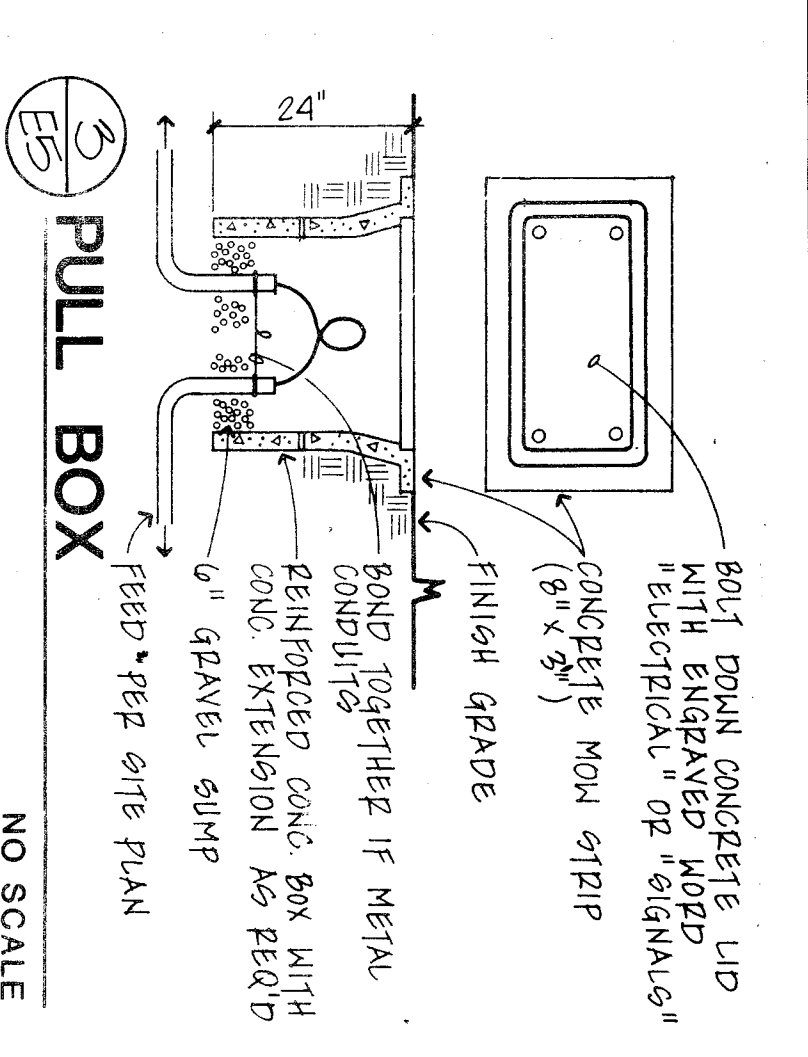 24"
BOLT DOWN CONCRETE LID
WITH ENGRAVED WORD
"ELECTRICAL" OR "SIGNALS"
CONCRETE MOW STRIP
(8" X 3")
FINISH GRADE
BOND TOGETHER IF METAL
CONDUITS
REINFORCED CONC. BOX WITH
CONC. EXTENSION AS REQ'D
6" GRAVEL SUMP
FEED PER SITE PLAN
3
E5
PULL BOX
NO SCALE